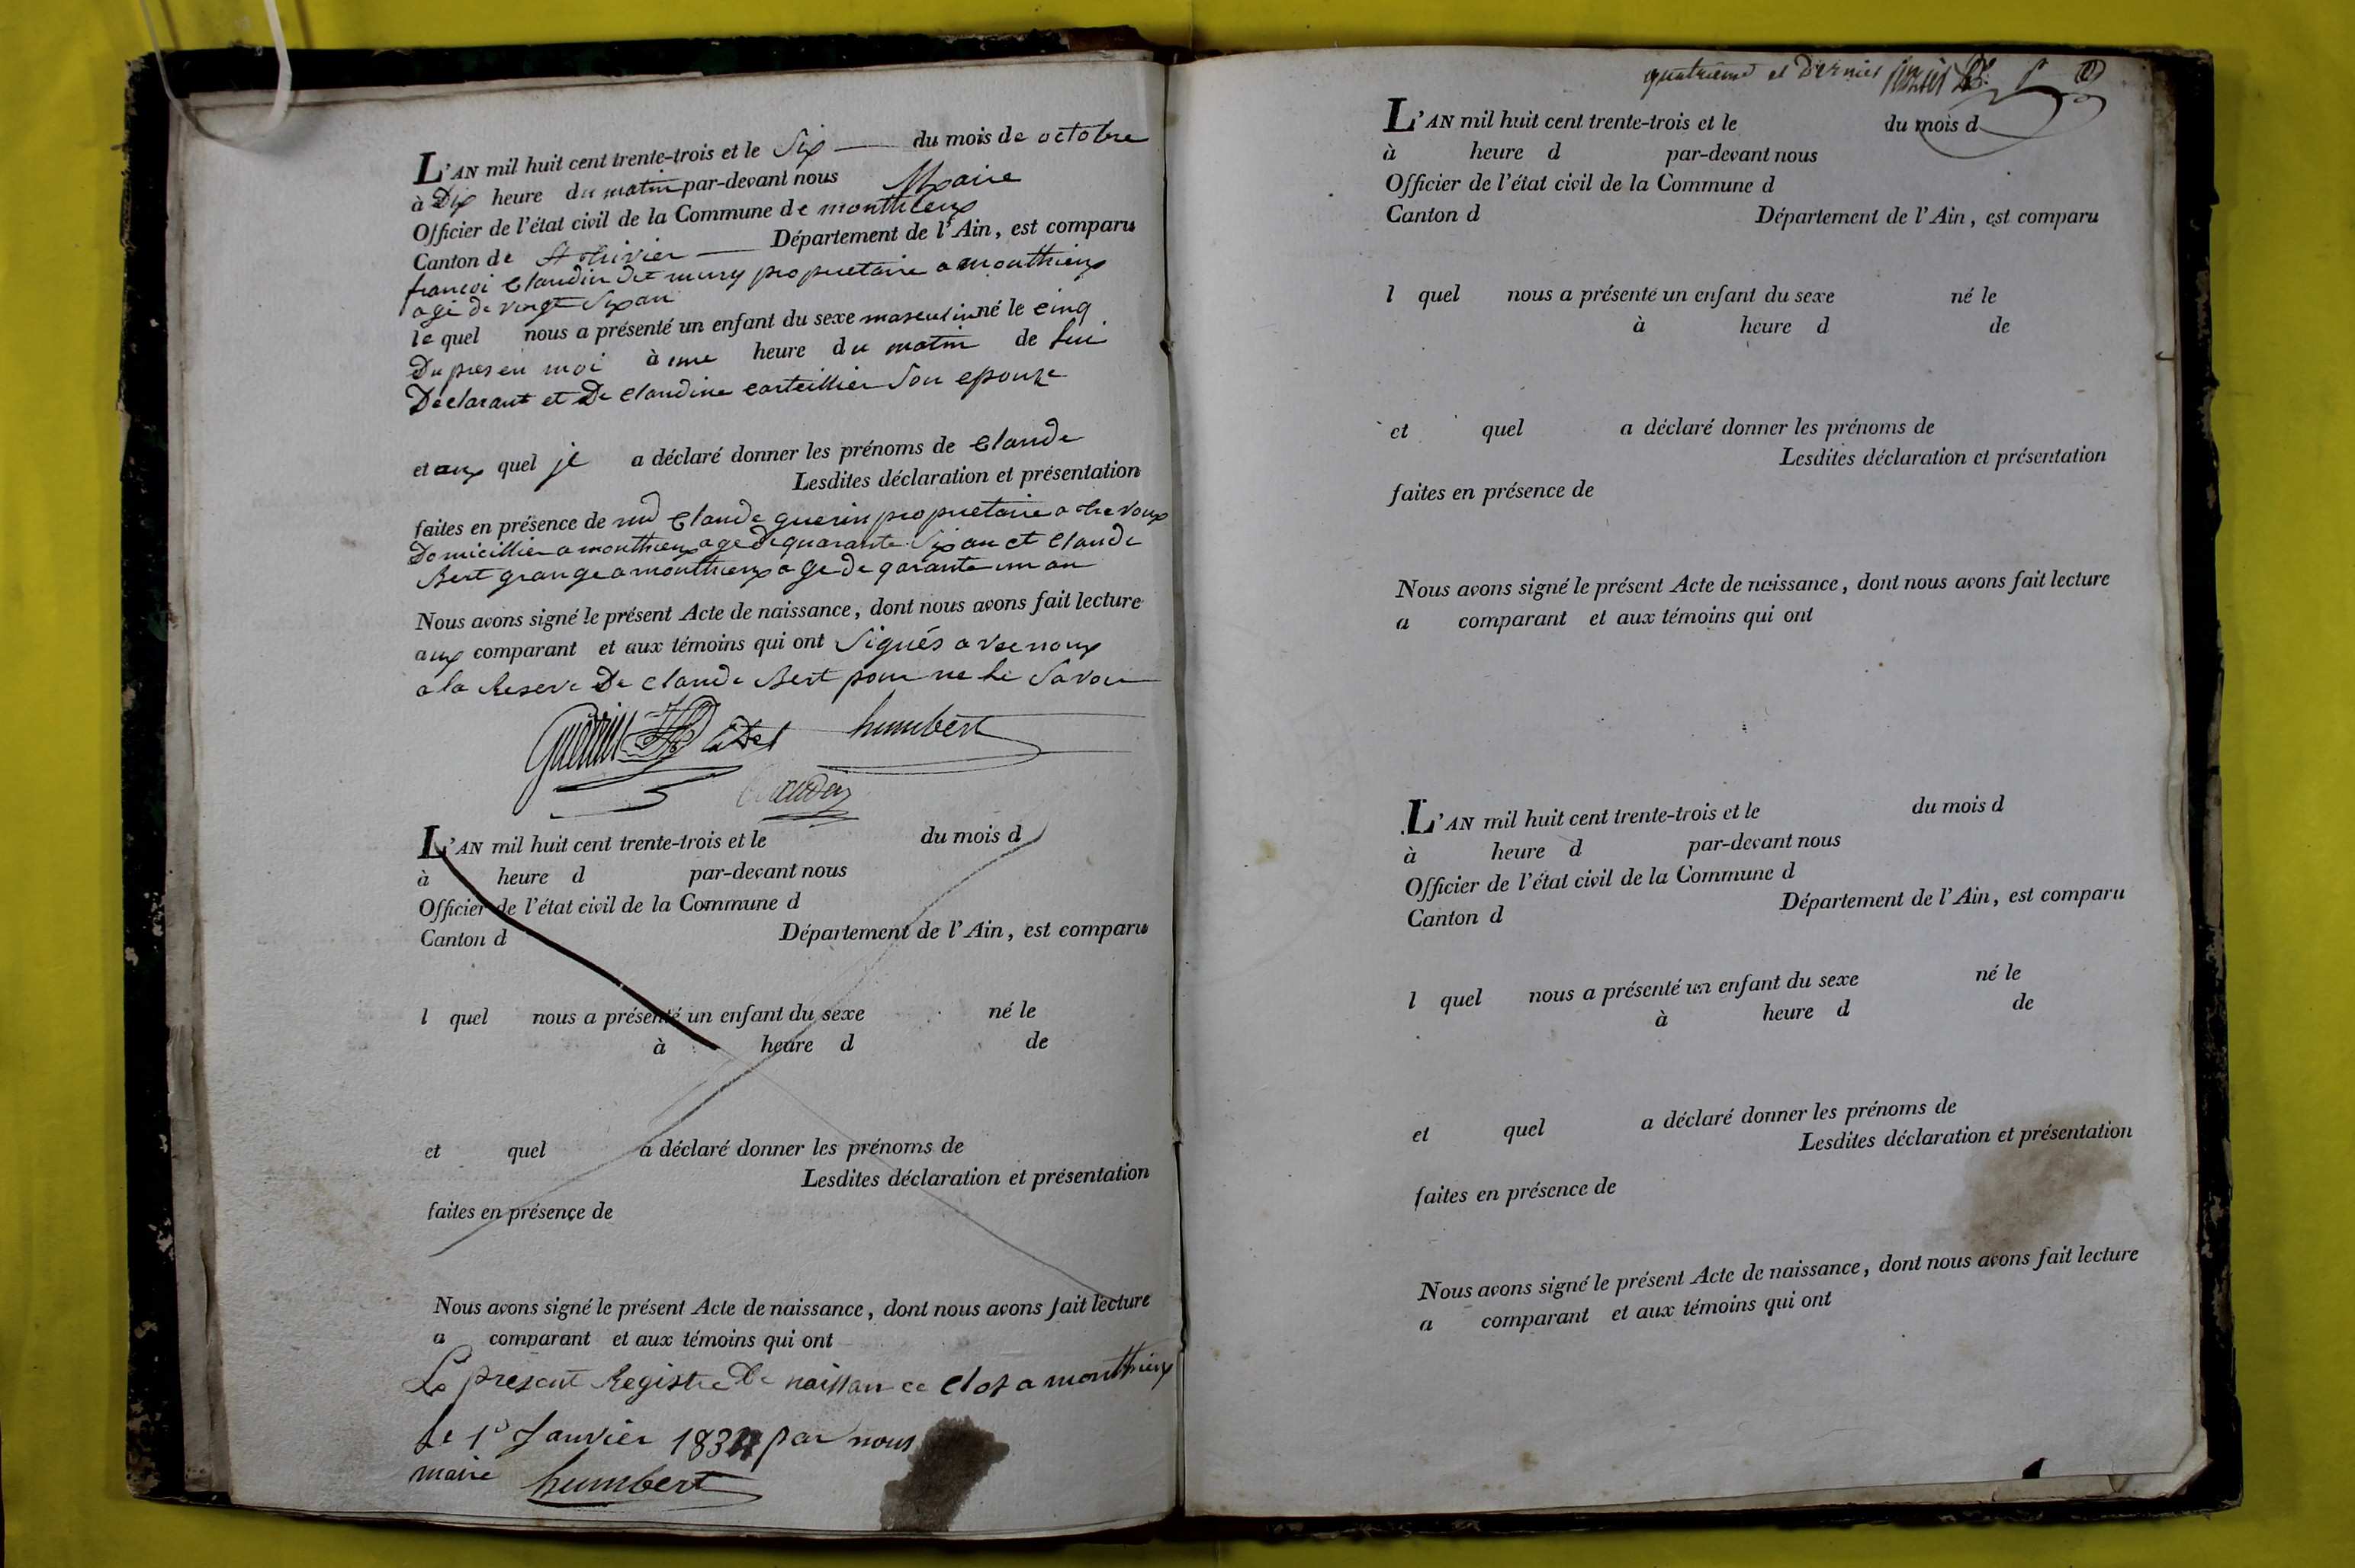 L'AN mil huit cent trente-trois et le Six du mois de octobre
à Dix heure du matin par-devant nous Maire
Officier de l'état civil de la Commune de monthieux
Canton de St trivier Département de l'Ain, est comparu
francoi Claudin dit mury proprietaire a monthieux
agé de vingt Six an
le quel nous a présenté un enfant du sexe masculin né le cinq
Du presen moi à une heure du matin de lui
Declarant et De claudine corteillier Son epouse
et aux quel je a déclaré donner les prénoms de Claude
Lesdites déclaration et présentation
faites en présence de Claude guerin proprietaire a trevoux
Domicillier a monthieux age de quarante Six an et Claude
Bert granger a monthieux age de qarante un an
Nous avons signé le présent Acte de naissance, dont nous avons fait lecture
aux comparant et aux témoins qui ont Signés avec nous
a la Reserve De claude Bert pour ne le Savoir
Guérin humbert
Claudin
L'AN mil huit cent trente-trois et le du mois d
à heure d par-devant nous
Officier de l'état civil de la Commune d
Canton d Département de l'Ain, est comparu
l quel nous a présenté un enfant du sexe né le
à heure d de
et quel a déclaré donner les prénoms de
Lesdites déclaration et présentation
faites en présence de
Nous avons signé le présent Acte de naissance, dont nous avons fait lecture
a comparant et aux témoins qui ont
Le present Registre De naissance clos a monthieux
Le 1er Janvier 1834 par nous
maire humbert
quatrieme et Dernier
L'AN mil huit cent trente-trois et le du mois d
à heure d par-devant nous
Officier de l'état civil de la Commune d
Canton d Département de l'Ain, est comparu
l quel nous a présenté un enfant du sexe né le
à heure d de
et quel a déclaré donner les prénoms de
Lesdites déclaration et présentation
faites en présence de
Nous avons signé le présent Acte de naissance, dont nous avons fait lecture
a comparant et aux témoins qui ont
L'AN mil huit cent trente-trois et le du mois d
à heure d par-devant nous
Officier de l'état civil de la Commune d
Canton d Département de l'Ain, est comparu
l quel nous a présenté un enfant du sexe né le
à heure d de
et quel a déclaré donner les prénoms de
Lesdites déclaration et présentation
faites en présence de
Nous avons signé le présent Acte de naissance, dont nous avons fait lecture
a comparant et aux témoins qui ont